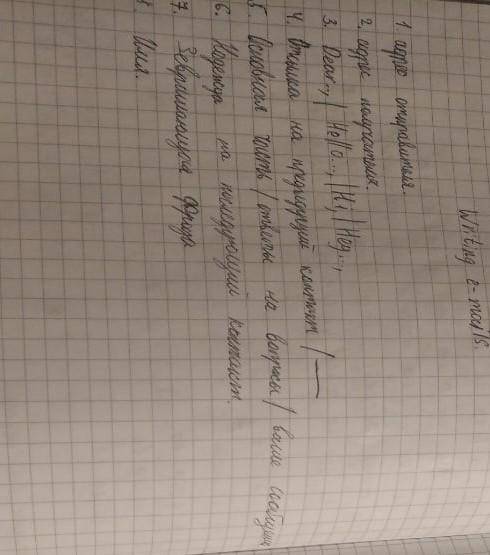 Writing e-mails.
1 адрес отправителя.
2. адрес получателя.
3. Dear.., / Hello..., / Hi, / Hey...,
4. Отсылка на предыдущий контакт / —
5. Основная часть / ответы на вопросы / ваше сообщение
6. Надежда на последующий контакт.
7. Завершающая фраза
8. Имя.